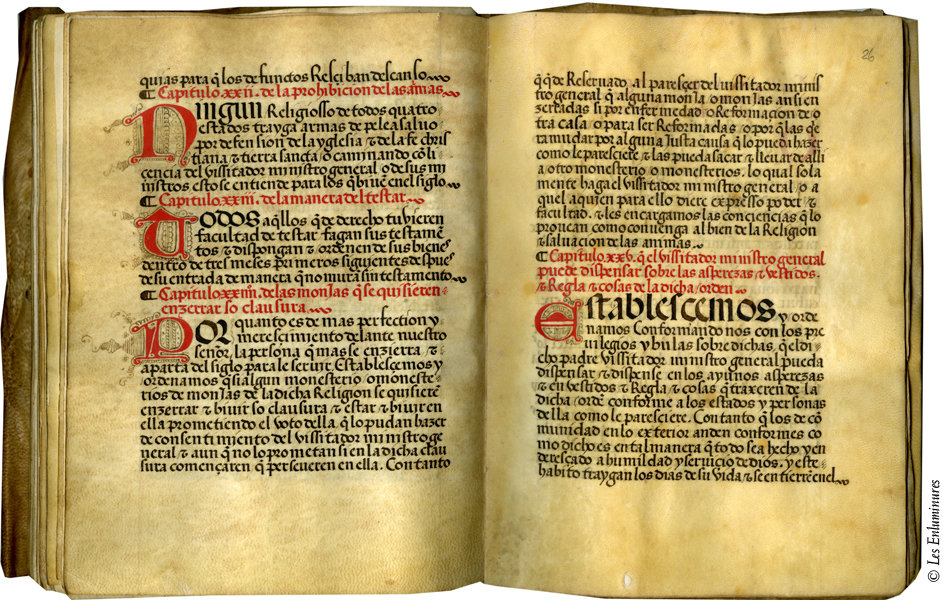 quias para q̃ los defunctos Resçiban descanso
¶ Capitulo. xxij. de la prohibicion de las armas.
Ningun Religiosso de todos quatro
estados trayga armas de pelea saluo
por defension de la yglesia ⁊ de la fe chris
tiana ⁊ tierra sancta / o caminando cõ li
cencia del vissitador ministro general / o de sus mi
nistros esto se entiende para los q̃ biuẽ en el siglo
¶ Capitulo. xxiij. de la manera del testar
Todos aq̃llos q̃ de derecho tubieren
facultad de testar fagan sus testamẽ
tos ⁊ dispongan ⁊ ordenen de sus bienes
dentro de tres meses primeros siguientes despues
de su entrada de manera q̃ no mura sin testamento
¶ Capitulo. xxiiij. de las monjas q̃ se quisieren
enzerrar so clausura
Por quanto es de mas perfection y
meresçimiento delante nuestro
señor, la persona q̃ mas se enzierra ⁊
aparta del siglo para le seruir. Establesçemos y
ordenamos q̃ si algun monesterio / o moneste
rios de monjas de la dicha Religion se quisierẽ
enzerrar ⁊ biuir so clausura ⁊ estar ⁊ biuir en
ella prometiendo el voto della. q̃ lo puedan hazer
de consentimiento del vissitador ministro ge
neral ⁊ aun q̃ no lo prometan si en la dicha clau
sura començaren q̃ perseueren en ella. Con tanto
26
q̃ q̃de Reseruado al paresçer del vissitador minis
tro general q̃ alguna monja / o monjas ansi en
zerradas si por enfermedad / o Reformacion de o
tra casa / o para ser Reformadas / o por q̃ las q̃e
ra mudar por alguna Justa causa q̃ lo pueda hazer
como le paresciere ⁊ las pueda sacar ⁊ lleuar de alli
a otro monesterio / o monesterios. lo qual sola
mente haga el vissitador ministro general / o a
quel a quien para ello diere expresso poder ⁊
facultad. ⁊ les encargamos las conciencias q̃ lo
prouean como conuenga al bien de la Religion
⁊ saluacion de las animas.
¶ Capitulo. xxv. q̃ el vissitador ministro general
puede dispensar sobre las asperezas ⁊ vestidos.
⁊ Regla ⁊ cosas de la dicha / orden
Establescemos y orde
namos Conformando nos con los pre
uilegios y bulas sobre dichas. q̃ el di
cho padre vissitador ministro general pueda
dispensar ⁊ dispense en los ayunos asperezas
⁊ en vestidos ⁊ Regla ⁊ cosas q̃ traxeren de la
dicha / ordẽ conforme a los estados y personas
della como le paresciere. Con tanto q̃ los de co
munidad en lo exterior anden conformes co
mo dicho es en tal manera q̃ todo sea hecho y en
deresçado a humildad y seruicio de dios. y este
habito traygan los dias de su vida ⁊ se entierrẽ en el
© Les Enluminures